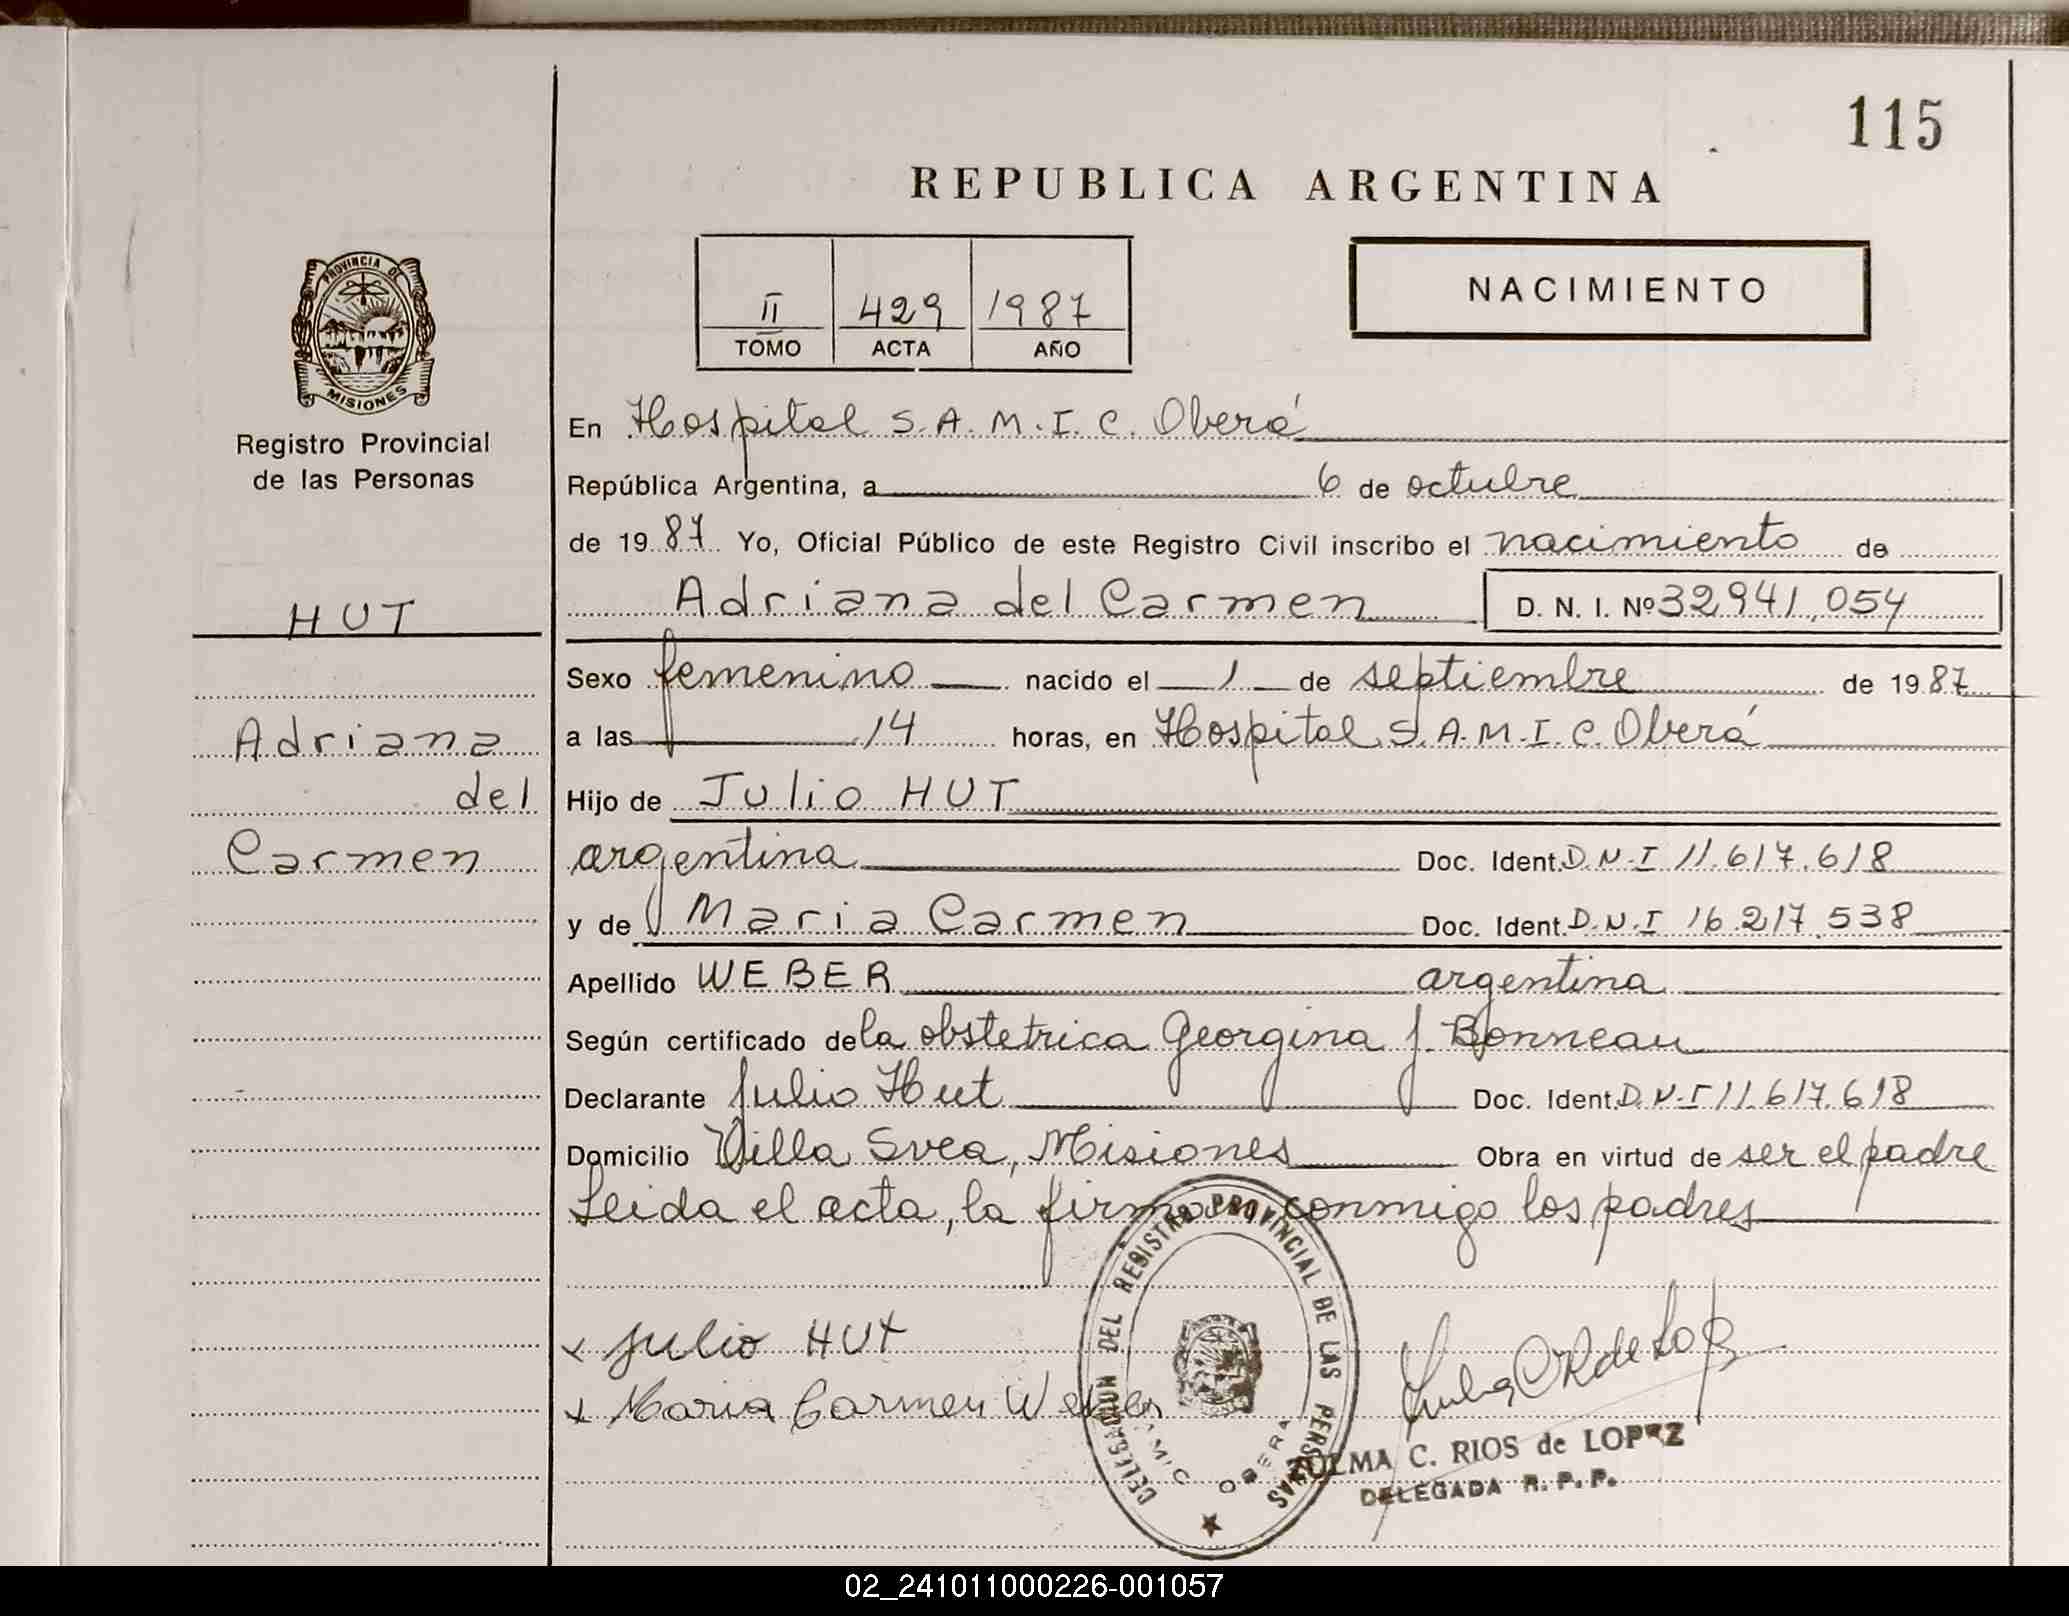 115
REPUBLICA ARGENTINA
II 429 1987
TOMO ACTA AÑO
NACIMIENTO
PROVINCIA DE
MISIONES
Registro Provincial
de las Personas
HUT
Adriana
del
Carmen
En Hospital S.A.M.I.C. Oberá
República Argentina, a 6 de octubre
de 1987 Yo, Oficial Público de este Registro Civil inscribo el nacimiento de
Adriana del Carmen D. N. I. Nº 32.941.054
Sexo femenino nacido el 1 de septiembre de 1987
a las 14 horas, en Hospital S.A.M.I.C. Oberá
Hijo de Julio HUT
argentina Doc. Ident. D.N.I 11.617.618
y de Maria Carmen Doc. Ident. D.N.I 16.217.538
Apellido WEBER argentina
Según certificado de la obstetrica Georgina J. Bonneau
Declarante Julio Hut Doc. Ident. D.N.I 11.617.618
Domicilio Villa Svea, Misiones Obra en virtud de ser el padre
Leida el acta, la firman conmigo los padres
x Julio HUT
x Maria Carmen Weber
DELEGACION DEL REGISTRO PROVINCIAL DE LAS PERSONAS
SAMIC OBERA
ZULMA C. RIOS de LOPEZ
DELEGADA R. P. P.
02_241011000226-001057